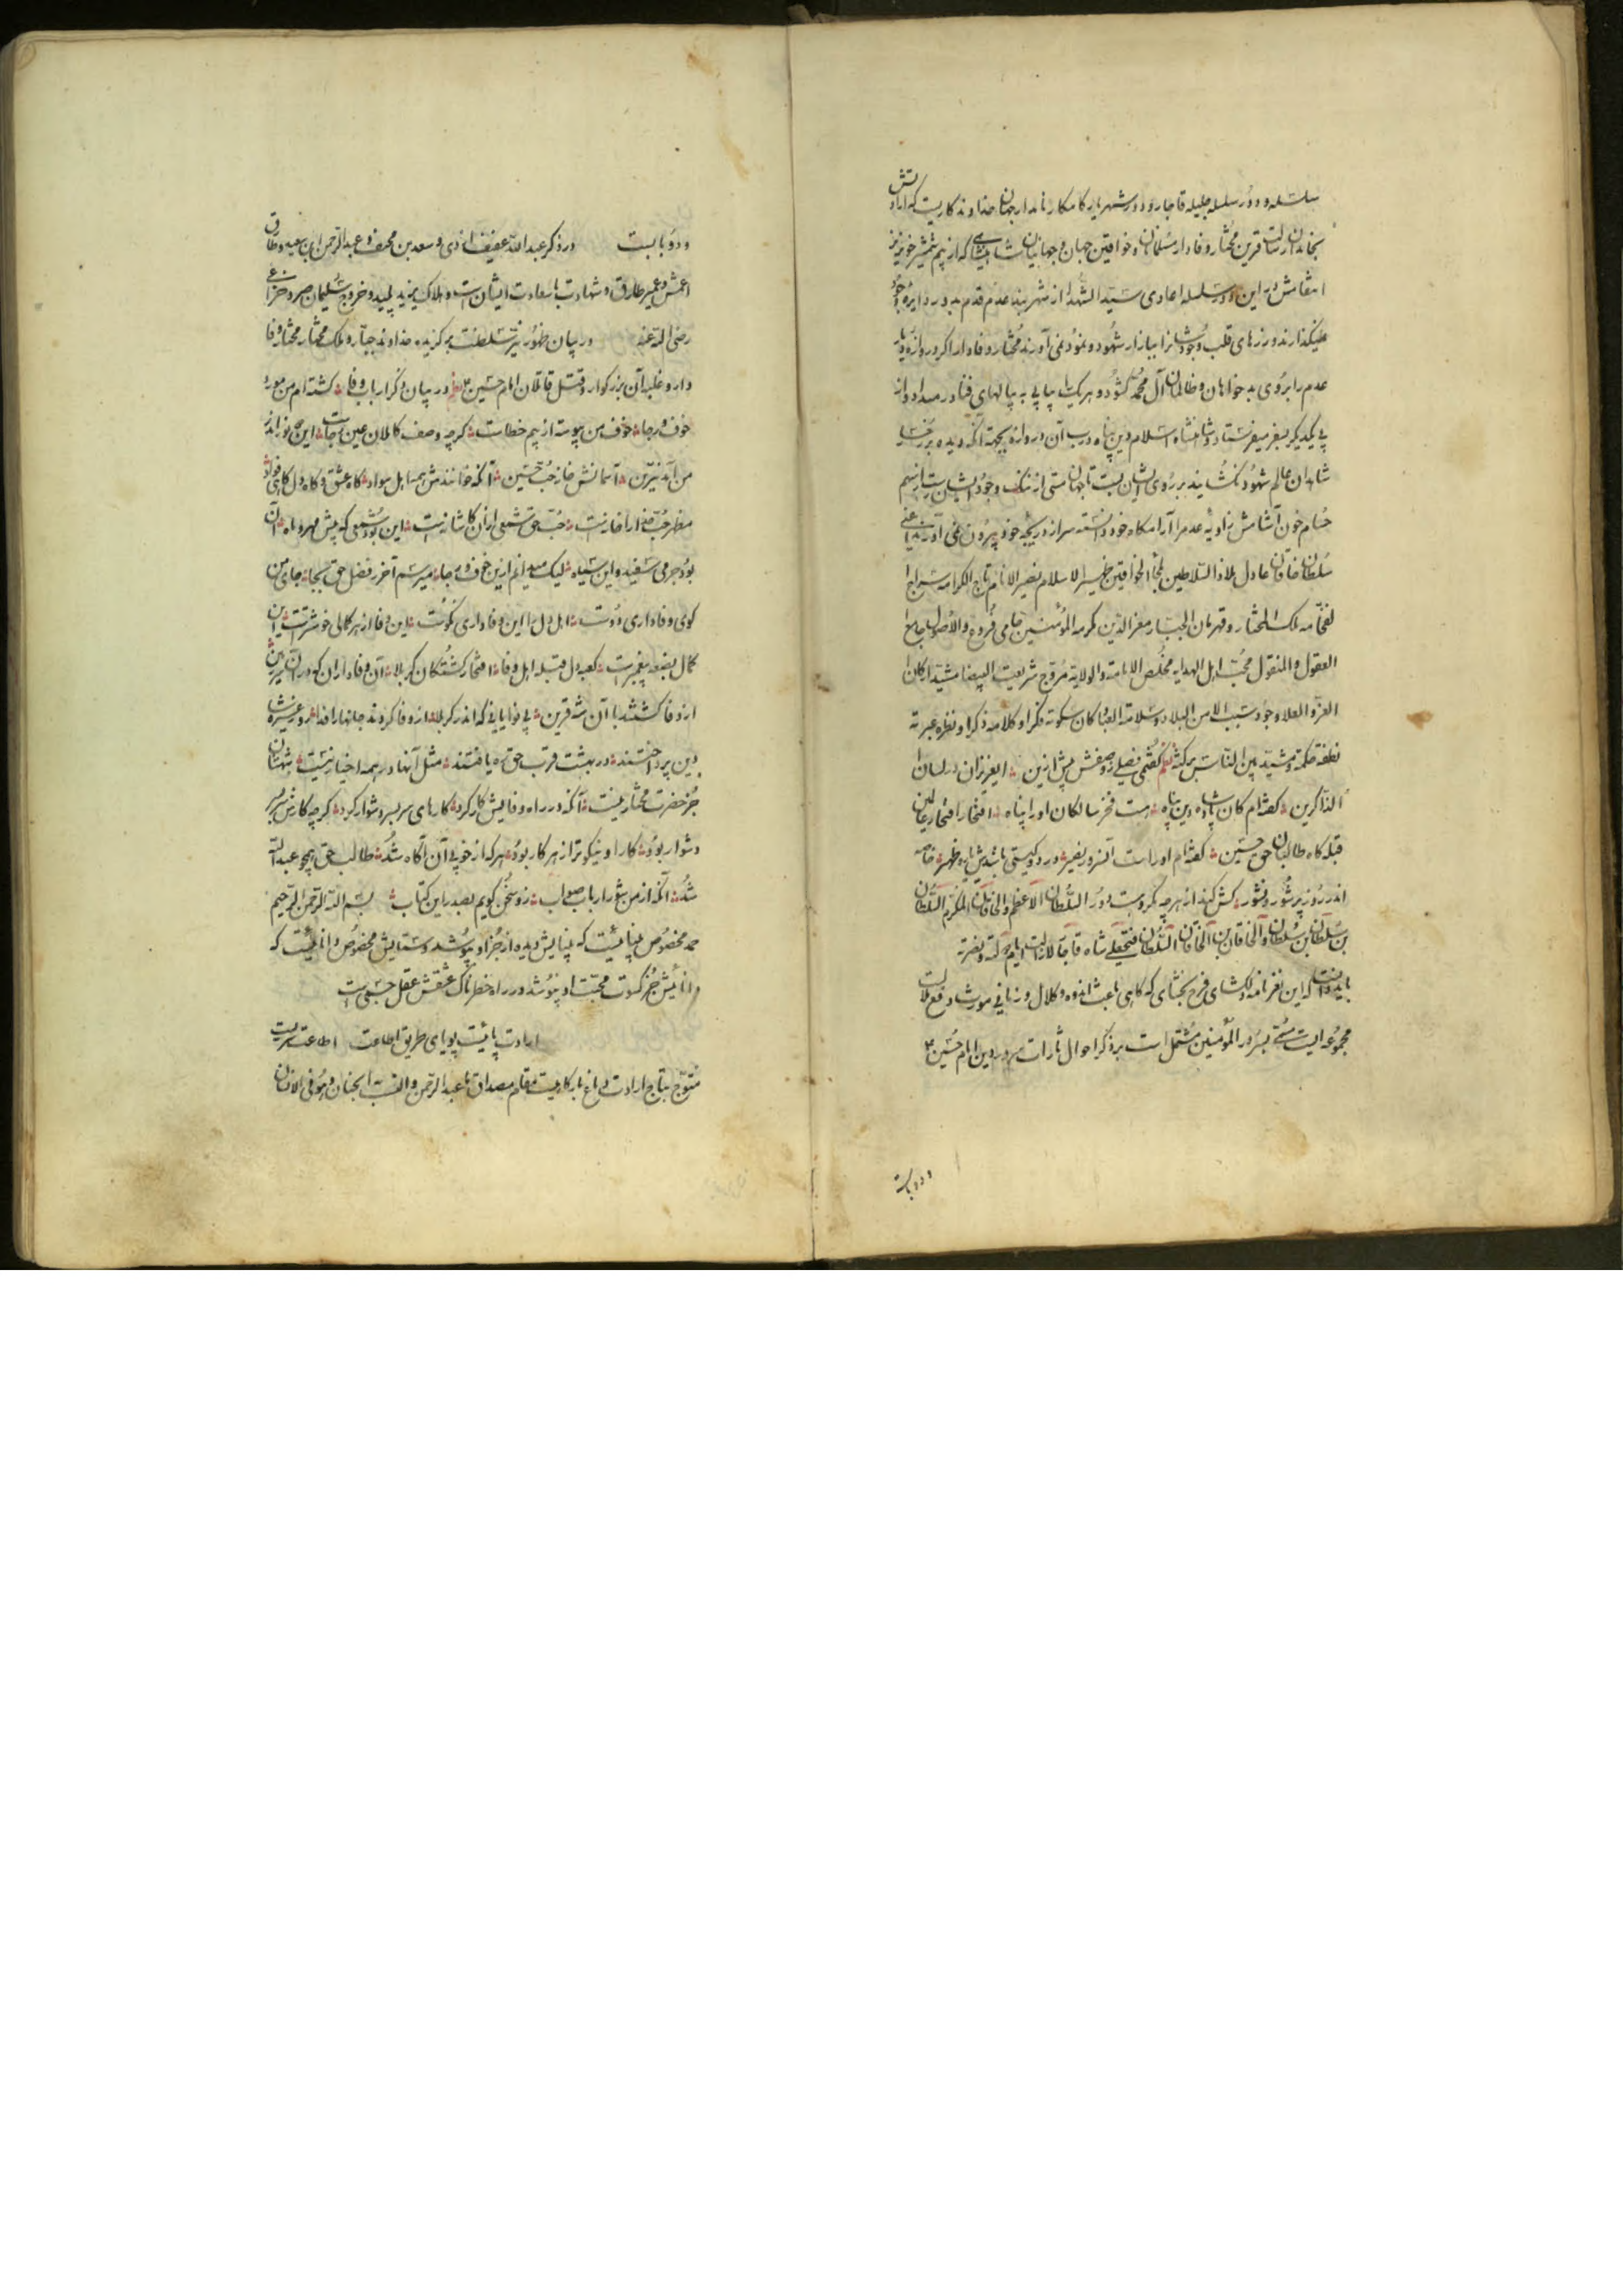 سلسله و دور سلسله جلیله قاجار و دور شهریار کامکار نامدار جهان خداوندکاریست که ارادتش
بخاندان رسالت قرین مختار وفادار مسلمانان و خواقین جهان و جهانیان شاهنشاهی که از بیم شمشیر خونریز
انتقامش در این دور سلسله اعادی سید الشهدا از شهربند عدم قدم بدور دایره وجود
نمیگذارند و زرهای قلب وجودشانرا ببازار شهود و نمود نمی آورند مختار وفادار اگر دروازه دیار
عدم را بروی بدخواهان و ظالمان آل محمد گشود و هر یک را پیاپی به پیالهای فنا در میداد و از
پی یکدیگر بسفر میفرستاد شاهنشاه اسلام دین پناه درب آن دروازه بجهة آنکه دیده
شاهدان عالم شهود نگشایند بر روی ایشان بست تا جهان هستی از ننگ وجود ایشان رست از بیم
حسام خون آشامش زاویه عدم را آرامگاه خود دانسته سر از دریچه خود بیرون نمی آورند اعنی
سلطان خاقان عادل ملاذ السلاطین ملجأ الخواقین ظهیر الاسلام نصیر الانام تاج الکرامه سراج
الفخامه ملک المختار و قهرمان الجبار معز الدین مکرمه المؤمنین حامی فروع و الاصول جامع
المعقول و المنقول محب اهل الهدایه مخلص الامامة و الولایة مروج شریعت البیضا مشید ارکان
العز و العلا وجوده سبب الامن البلاد و سلامة العباد کان سکوته فکرا و کلامه ذکرا و نظره عبرة
نطفه حکمة و مشیه بین الناس برکة نظم گفتمی فصلی ز وصفش پیش ازین ایعزیزان در لسان
الذاکرین گفته‌ام کان پادشاه دین پناه هست فخر سالکان او را پناه افتخار افتخار عالمین
قبله گاه طالبان حق حسین گفته‌ام او راست آنسرور نصیر در دو گیتی باشدش
اندر روز پر شور و نشور کش کند از هر چه مکروهست دور السلطان الاعظم و الخاقان المکرم السلطان
بن سلطان بن سلطان و الخاقان بن الخاقان السلطان فتحعلی شاه قاجار لازالت ایام دولته و نصرته
باید دانست که این نغز نامه دلگشای فرح بخشای که گاهی باعث اندوه و کلال و زمانی مورث دفع ملالست
مجموعه ایست مسمی بسرور المؤمنین مشتمل است بر ذکر احوال ثارات سرور دین امام حسین ع
و دو بابست
و دو بابست در ذکر عبد الله عفیف ازدی و سعد بن مخنف و عبد الرحمن ابن سعید و طارق
اعمش و عمیر طارق و شهادت باسعادت ایشان است و هلاک یزید پلید و خروج سلیمان صرد خزاعی
رضی الله عنه در بیان ظهور نیر سلطنت برگزیده خداوند جبار و ملک مختار مختار وفا
دار و غلبه آن بزرگوار و قتل قاتلان امام حسین ع در بیان ذکر ارباب وفا گشته ام من مورد
خوف و رجا خوف من پیوسته از بیم خطاست گرچه وصف کاملان عین رجاست این چه نور اندر
من آمد نیرین آسمانش خاز حب حسین آنکه خوانندش همه اهل سواد گاه عشق و گاه دل گاهی فؤاد
مظهر حب خدا را خانه است حب حق شمعی در آن کاشانه است این بود شمعی که پیش مهر و ماه آن
بود جرمی سفید و این سیاه لیک میدانم ازین خوف و رجا میرسم آخر ز فضل حق بجا جای من
کوی وفاداری دوست اهل دل را این وفاداری نکوست این وفا از هر کمالی خوشتر است این
کمال بضعه پیغمبر است کعبه دل قبله اهل وفا افتخار کشتگان کربلا آن وفاداران که در آن سرزمین
از وفا کشتند با آن شه قرین بی نوایانی که اندر کربلا از وفا کردند جانها را فدا
دین پرداختند در بهشت قرب حق ره یافتند مثل آنها در همه اخیار نیست
جز حضرت مختار نیست آنکه در راه وفایش کار کرد کارهای سربسر دشوار کرد گرچه کارش سربسر
دشوار بود کار او نیکوتر از هر کار بود هر که از خوبی آن آگاه شد طالب حق همچو عبد الله
شد آنکه از من بشنو ارباب صواب زو سخن گویم بصدر این کتاب بسم الله الرحمن الرحیم
حمد مخصوص بینائیست که بینایش دیده از جز او پوشد و ستایش مخصوص دانائیست که
دانائیش جز کسوت محبت او نپوشد در راه خطرناک عشقش عقل
ارادت پائیست پویای طریق اطاعت اطاعت سریست
متوج بتاج ارادت دماغ بارگاهیست مقام مصداق ما عبد الرحمن و اکتسب الجنان